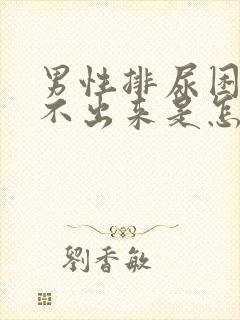 男性排尿困
不出来是怎
劉香敏